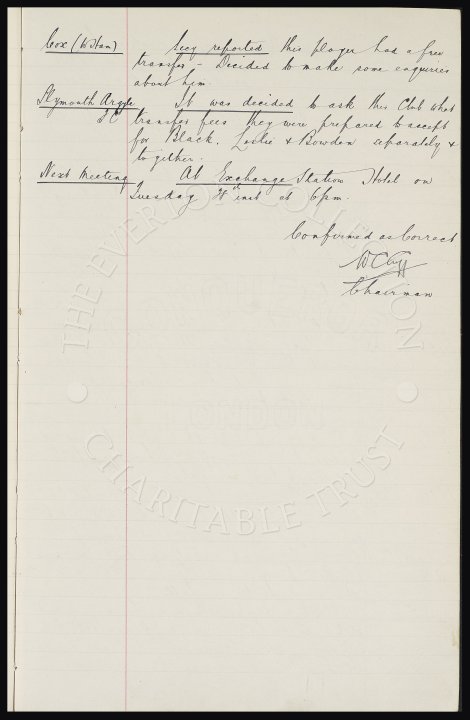 Cox (W. Ham) Secy reported this player had a free
transfer - Decided to make some enquiries
about him.
Plymouth Argyle It was decided to ask this Club what
F.C. transfer fees they were prepared to accept
for Black, Leslie & Bowden separately &
together.
Next Meeting At Exchange Station Hotel on
Tuesday inst at 6pm.
Confirmed as Correct
W C Cuff
Chairman
THE EVERTON COLLECTION
CHARITABLE TRUST